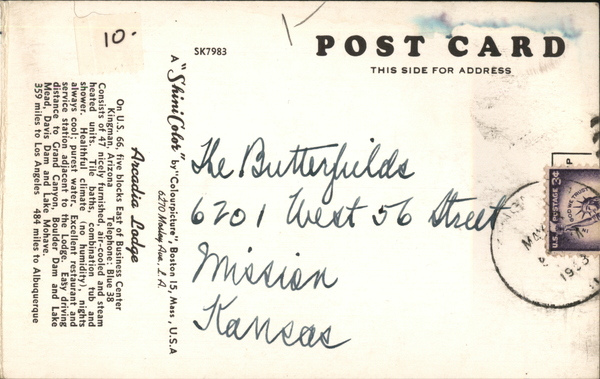 10.
SK7983
POST CARD
THIS SIDE FOR ADDRESS
Arcadia Lodge
On U.S. 66, five blocks East of Business Center
Kingman, Arizona Telephone: Blue 38
Consists of 47 nicely furnished, air-cooled and steam
heated units. Tile baths, combination tub and
shower. Healthful climate (no humidity), nights
always cool; purest water, Excellent restaurant and
service station adjacent to the Lodge. Easy driving
distance to Grand Canyon, Boulder Dam and Lake
Mead, Davis Dam and Lake Mohave.
359 miles to Los Angeles 484 miles to Albuquerque
A "ShiniColor" by "Colourpicture", Boston 15, Mass., U.S.A
6270 Ave., L.A.
The Butterfields
6201 West 56 Street
Mission
Kansas
P
U.S. POSTAGE 3¢
IN GOD WE TRUST
MAY
1953